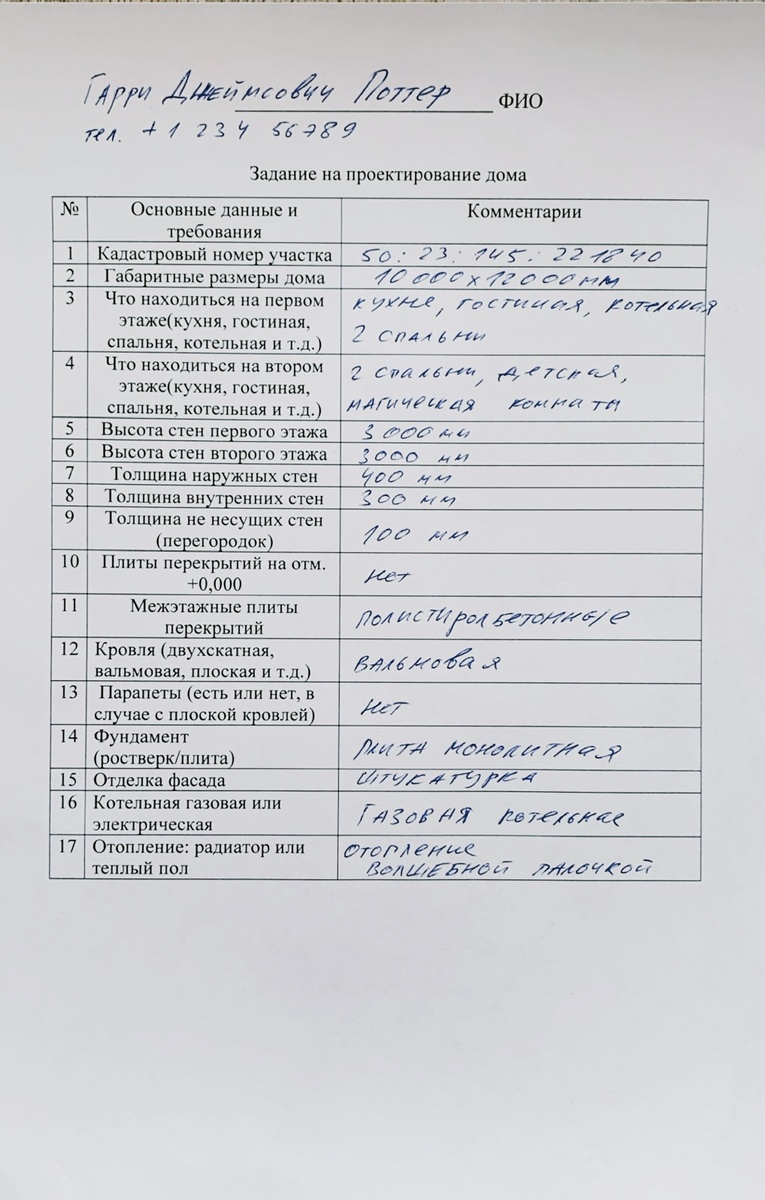 Гарри Джеймсович Поттер ФИО
тел. +1 234 56789
Задание на проектирование дома
№ Основные данные и требования Комментарии
1 Кадастровый номер участка 50:23:145:221840
2 Габаритные размеры дома 10 000 х 12 000 мм
3 Что находиться на первом кухне, гостиная, котельная
этаже(кухня, гостиная,
спальня, котельная и т.д.) 2 спальни
4 Что находиться на втором 2 спальни, детская,
этаже(кухня, гостиная,
спальня, котельная и т.д.) магическая комната
5 Высота стен первого этажа 3 000 мм
6 Высота стен второго этажа 3000 мм
7 Толщина наружных стен 400 мм
8 Толщина внутренних стен 300 мм
9 Толщина не несущих стен
(перегородок) 100 мм
10 Плиты перекрытий на отм.
+0,000 нет
11 Межэтажные плиты
перекрытий полистиролбетонные
12 Кровля (двухскатная,
вальмовая, плоская и т.д.) вальмовая
13 Парапеты (есть или нет, в
случае с плоской кровлей) нет
14 Фундамент
(ростверк/плита) плита монолитная
15 Отделка фасада штукатурка
16 Котельная газовая или
электрическая газовая котельная
17 Отопление: радиатор или отопление
теплый пол волшебной палочкой